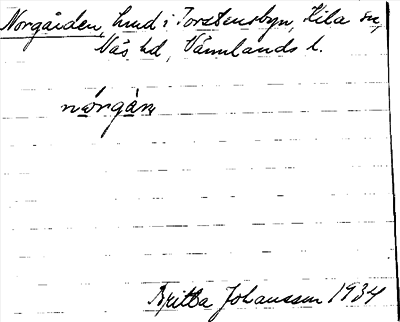 Norgården, hmd i Torstensbyn, Kila sn,
Näs hd, Värmlands l.
nørgàṇ
Britta Johansson 1934